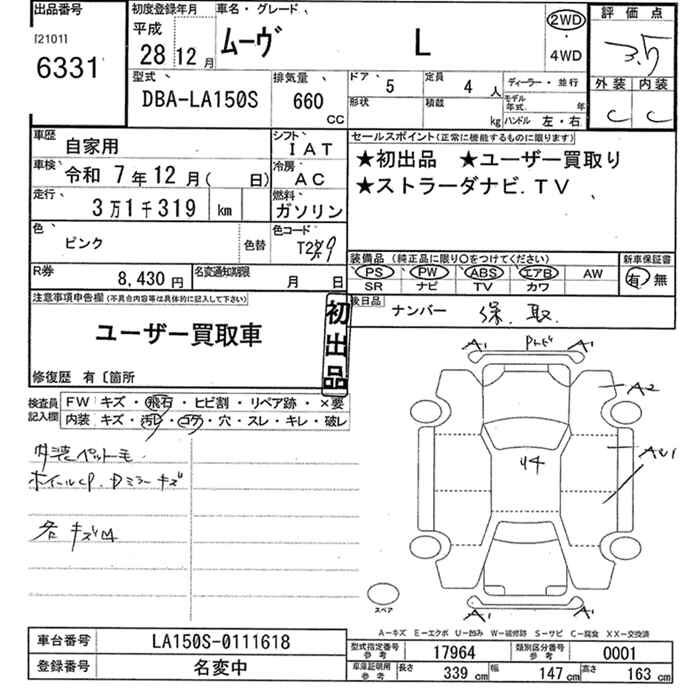 出品番号
[21011
6331
初度登録年月
平成
28 12月
車名・グレード、
ムーヴ L
2WD
・
4WD
評価点
3.5
外装 内装
C C
型式、
DBA-LA150S
排気量、
660
CC
ドア、 5
定員 4 人
形状
積載 kg
ディーラー・並行
モデル年式 年
ハンドル 左・右
車歴
自家用
シフト
IAT
車検、
令和 7年12月( 日)
冷房、
AC
走行、
3万1千319 km
燃料、
ガソリン
色、
ピンク
色替
色コード
R券
8,430円
名変通知期限
月 日
セールスポイント(正常に機能するものに限ります)
★初出品 ★ユーザー買取り
★ストラーダナビ.TV
装備品(純正品に限り○をつけてください)
PS PW ABS エアB AW
SR ナビ TV カワ
新車保証書
有・無
後日品
ナンバー 保.取.
注意事項申告欄(不具合内容等は具体的に記入して下さい)
ユーザー買取車
初出品
修復歴 有〔箇所
検査員記入欄
FW キズ・飛石・ヒビ割・リペア跡・×要
内装 キズ・汚レ・コゲ・穴・スレ・キレ・破レ
内装ペットモ
ホイールCP.Dミラーキズ
各キズ凹
A1 A1
A2
U4
A1 A1
スペア
A−キズ E−エクボ U−凹み W−補修跡 S−サビ C−腐食 XX−交換済
車台番号 LA150S-0111618
登録番号 名変中
型式指定番号参考 17964
類別区分番号参考 0001
車庫証明用参考 長さ 339 cm 幅 147 cm 高さ 163 cm